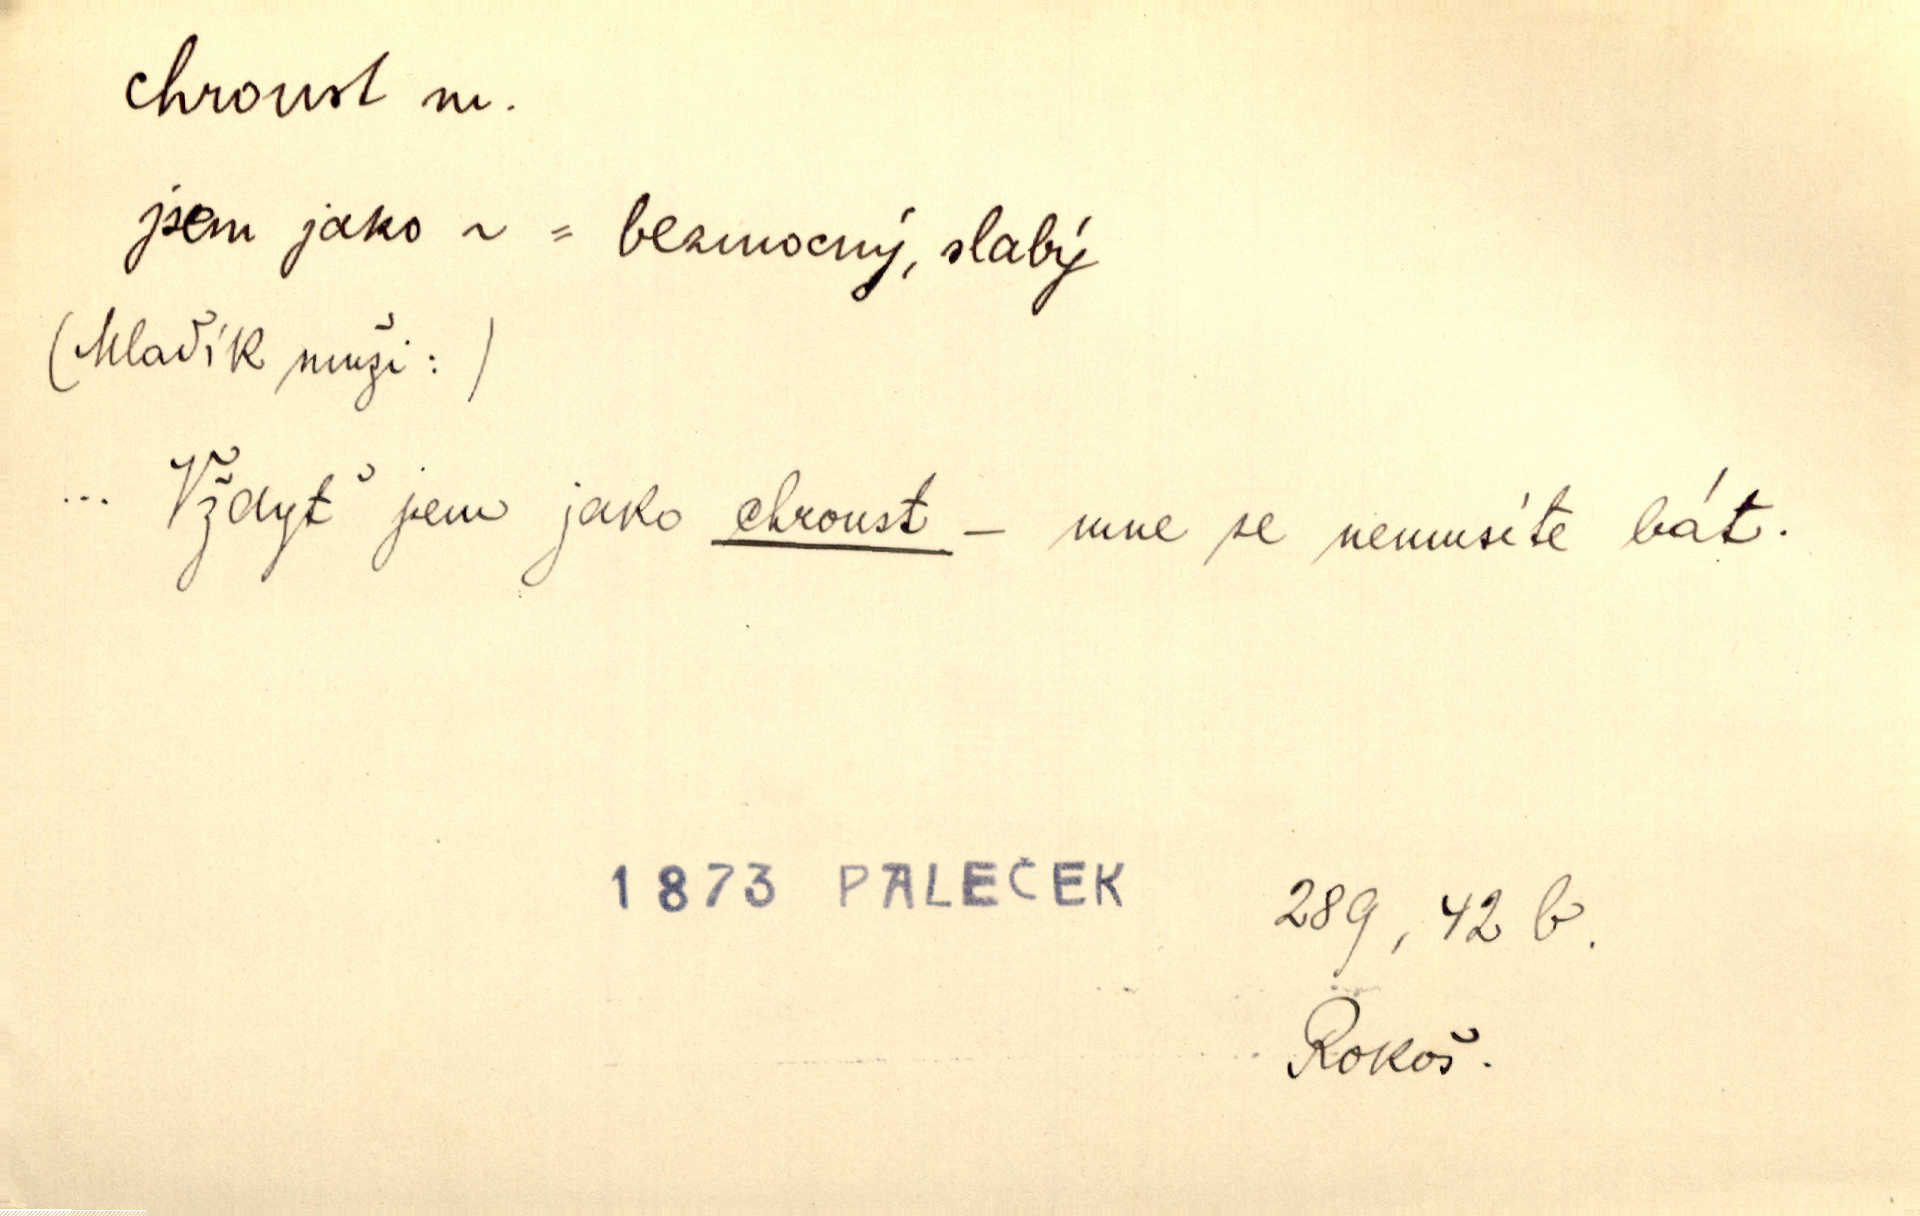 chroust m.
jsem jako ~ = bezmocný, slabý
(Mladík muži:)
... Vždyť jsem jako chroust - mne se nemusíte bát.
1873 PALEČEK
289, 42 b.
Rokoš.